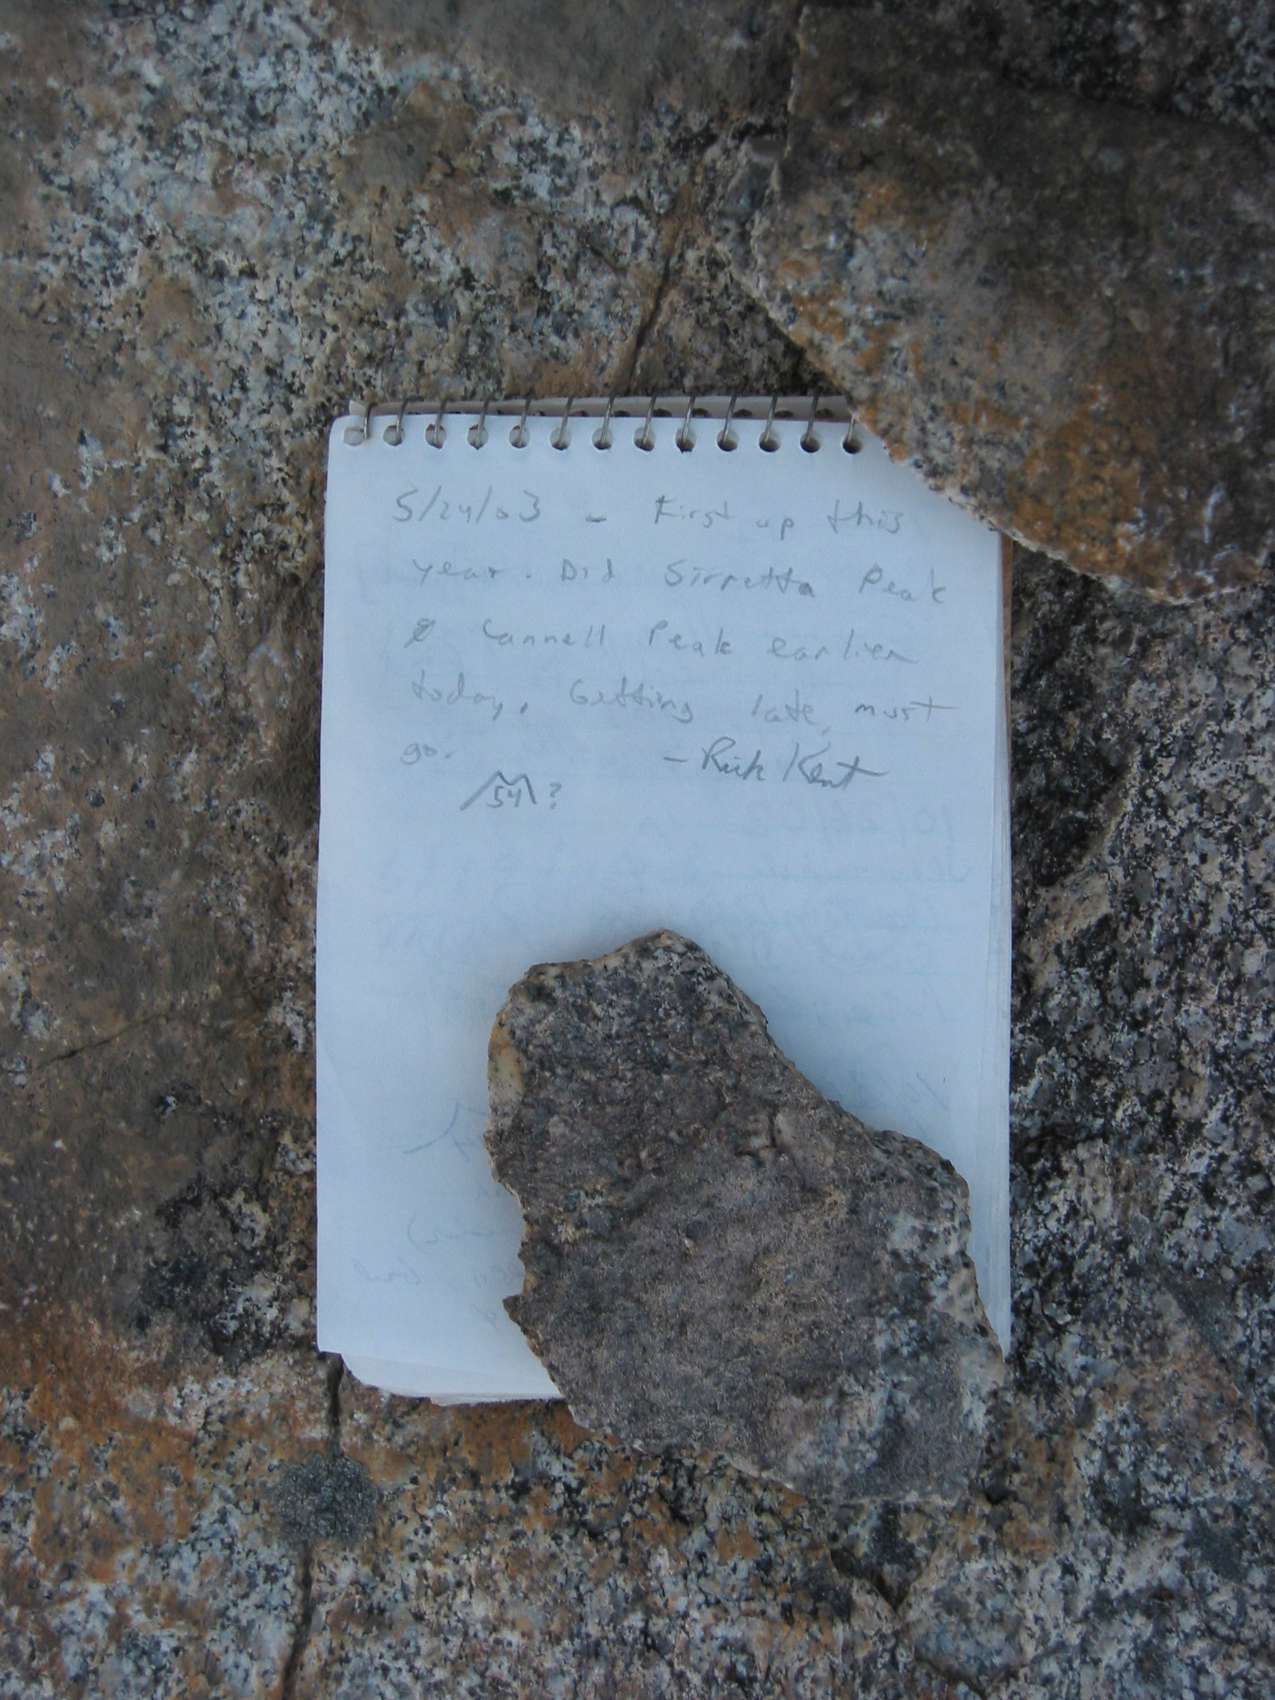 5/24/03 - First up this
year. Did Sirretta Peak
& Cannell Peak earlier
today. Getting late, must
go. - Rick Kent
54 ?